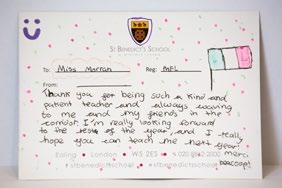 ST BENEDICT'S SCHOOL
To: Miss Marran Reg: MFL
From:
Thank you for being such a kind and
patient teacher and always waving
to me and my friends in the
corridor. I'm really looking forward
to the rest of the year, and I really
hope you can teach me next year!
merci
beacoup!
Ealing • London • W5 2ES • 020 8862 2000